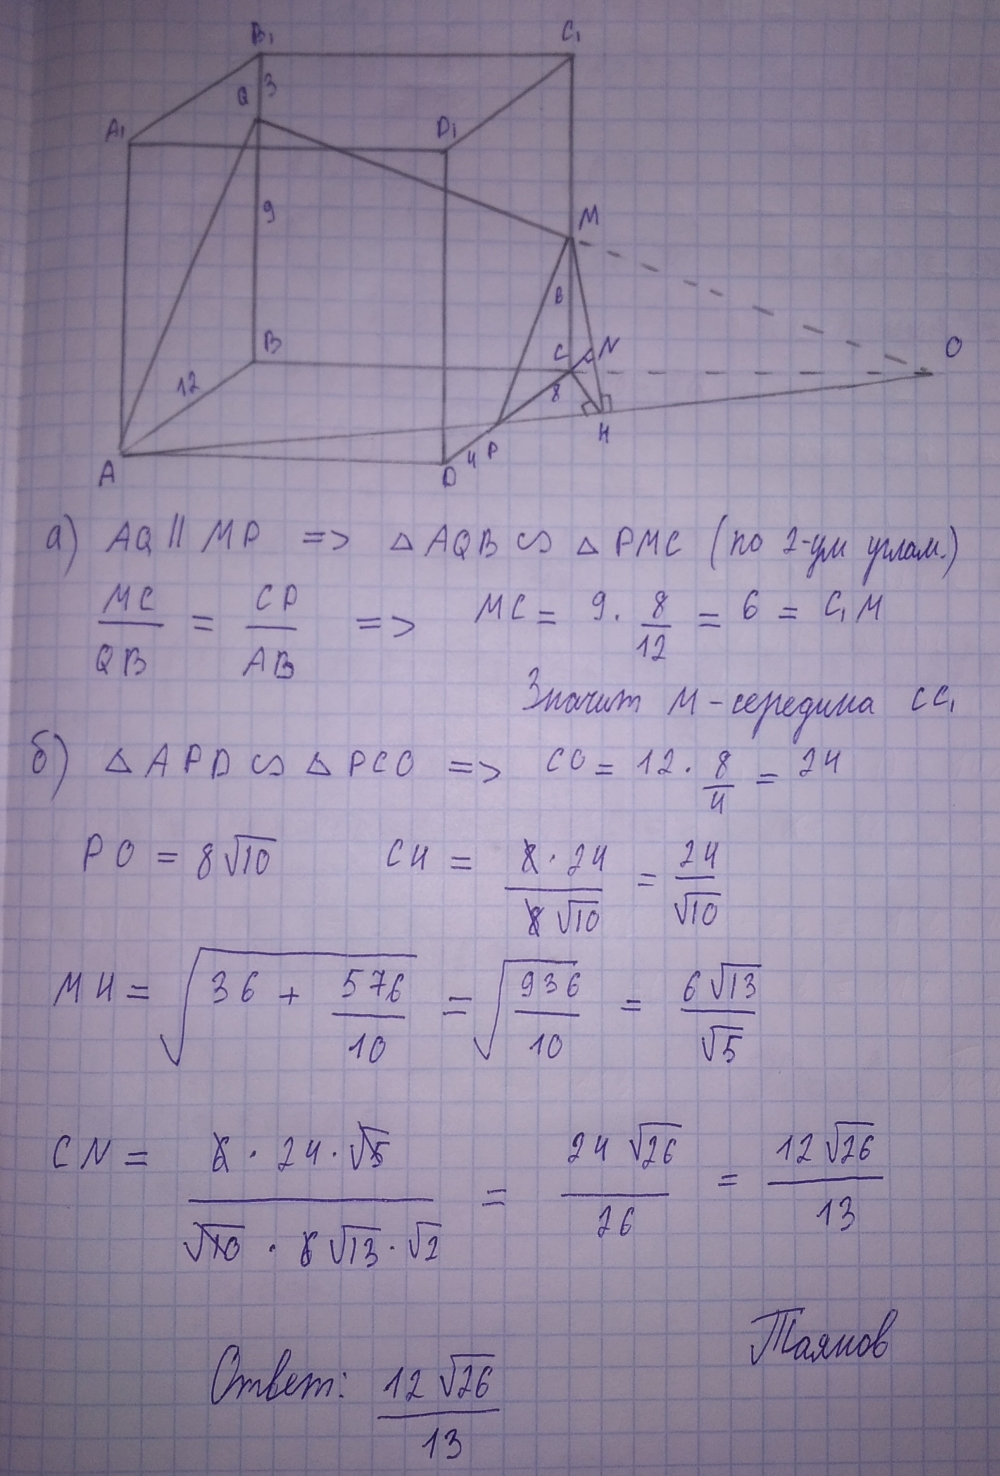 B₁ C₁
Q 3
A₁ D₁
9 M
6
B C N O
12 8
A D 4 P H
а) AQ || MP => △ AQB ∽ △ PMC (по 2-ум углам.)
MC/QB = CP/AB => MC = 9 · 8/12 = 6 = C₁M
Значит M - середина CC₁
б) △ APD ∽ △ PCO => CO = 12 · 8/4 = 24
PO = 8√10 CH = 8 · 24 / 8√10 = 24/√10
MH = √(36 + 576/10) = √(936/10) = 6√13/√5
CN = 6 · 24 · √5 / √10 · 6√13 · √2 = 24√26/26 = 12√26/13
Таянов
Ответ: 12√26/13